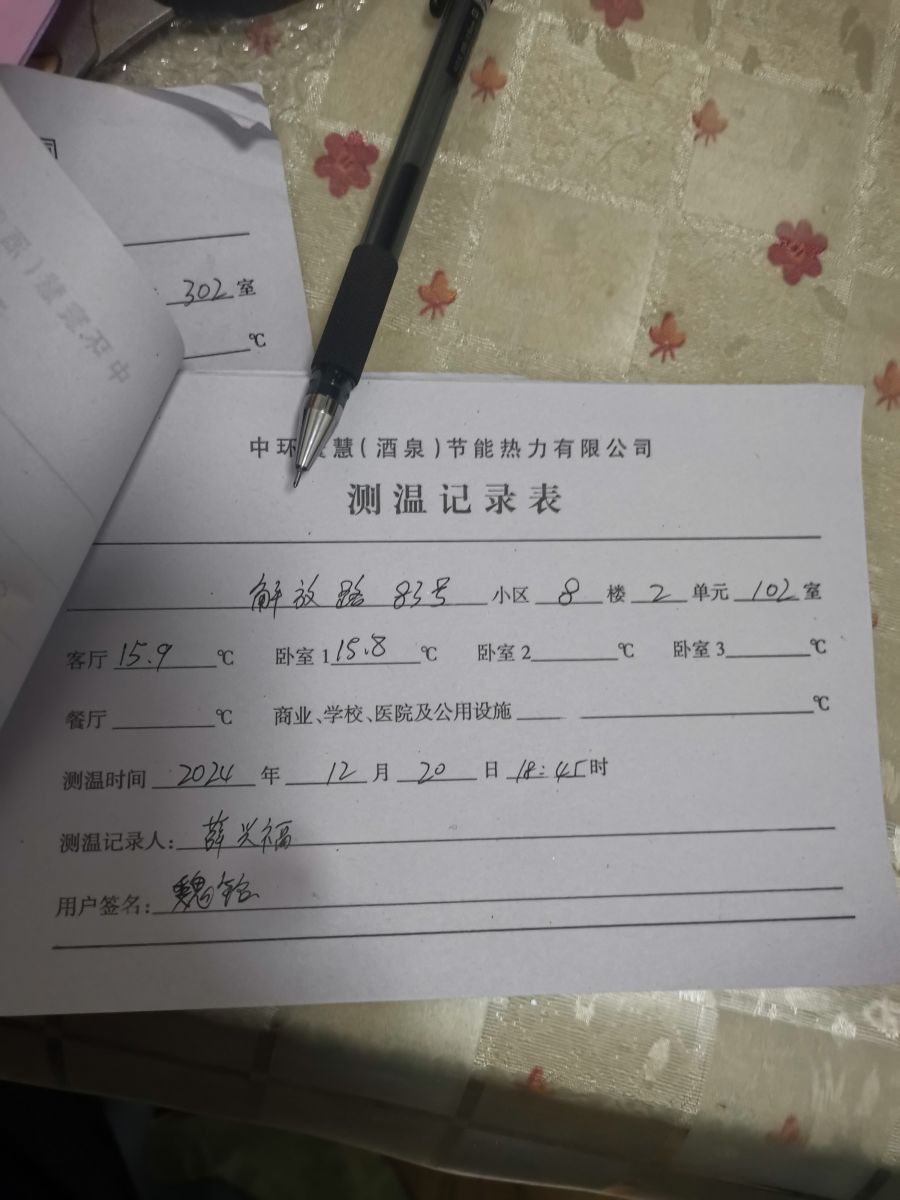 302室
℃
中环 慧(酒泉)节能热力有限公司
测温记录表
解放路83号 小区 8 楼 2 单元 102 室
客厅 15.9 ℃ 卧室1 15.8 ℃ 卧室2 ℃ 卧室3 ℃
餐厅 ℃ 商业、学校、医院及公用设施 ℃
测温时间 2024 年 12 月 20 日 18:45时
测温记录人: 薛兴福
用户签名: 魏